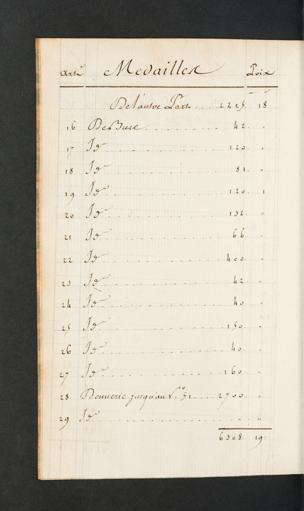 Art. Medailles Prix
De l'autre Part 2215. 18
16 De Buse 42.
17 Id 120.
18 Id 81.
19 Id 120. 1
20 Id 132.
21 Id 66.
22 Id 400.
23 Id 42
24 Id 40.
25 Id 150.
26 Id 40.
27 Id 160.
28 jusqu'au 51 2700.
29 Id
6308. 19